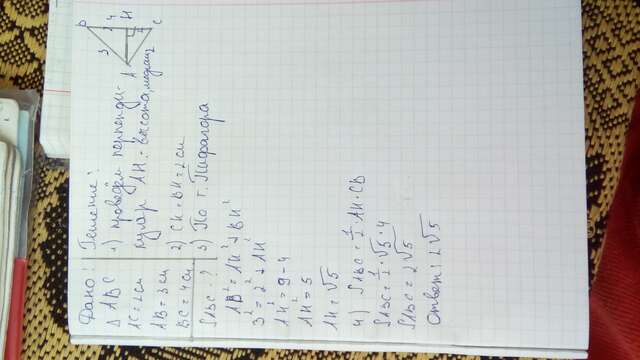 Дано:
△ ABC
AC = 2 см
AB = 3 см
BC = 4 см
SABC ?
Решение:
1) проведём перпенди-
куляр AH. - высота, медиана
2) CH = BH = 2 см
3) По т. Пифагора
AB² = AH² + BH²
3² = 2² + AH²
AH² = 9 - 4
AH² = 5
AH = √5
4) SABC = 1/2 AH · CB
SABC = 1/2 · √5 · 4
SABC = 2√5
Ответ: 2√5
B
3
2
4
H
C
A